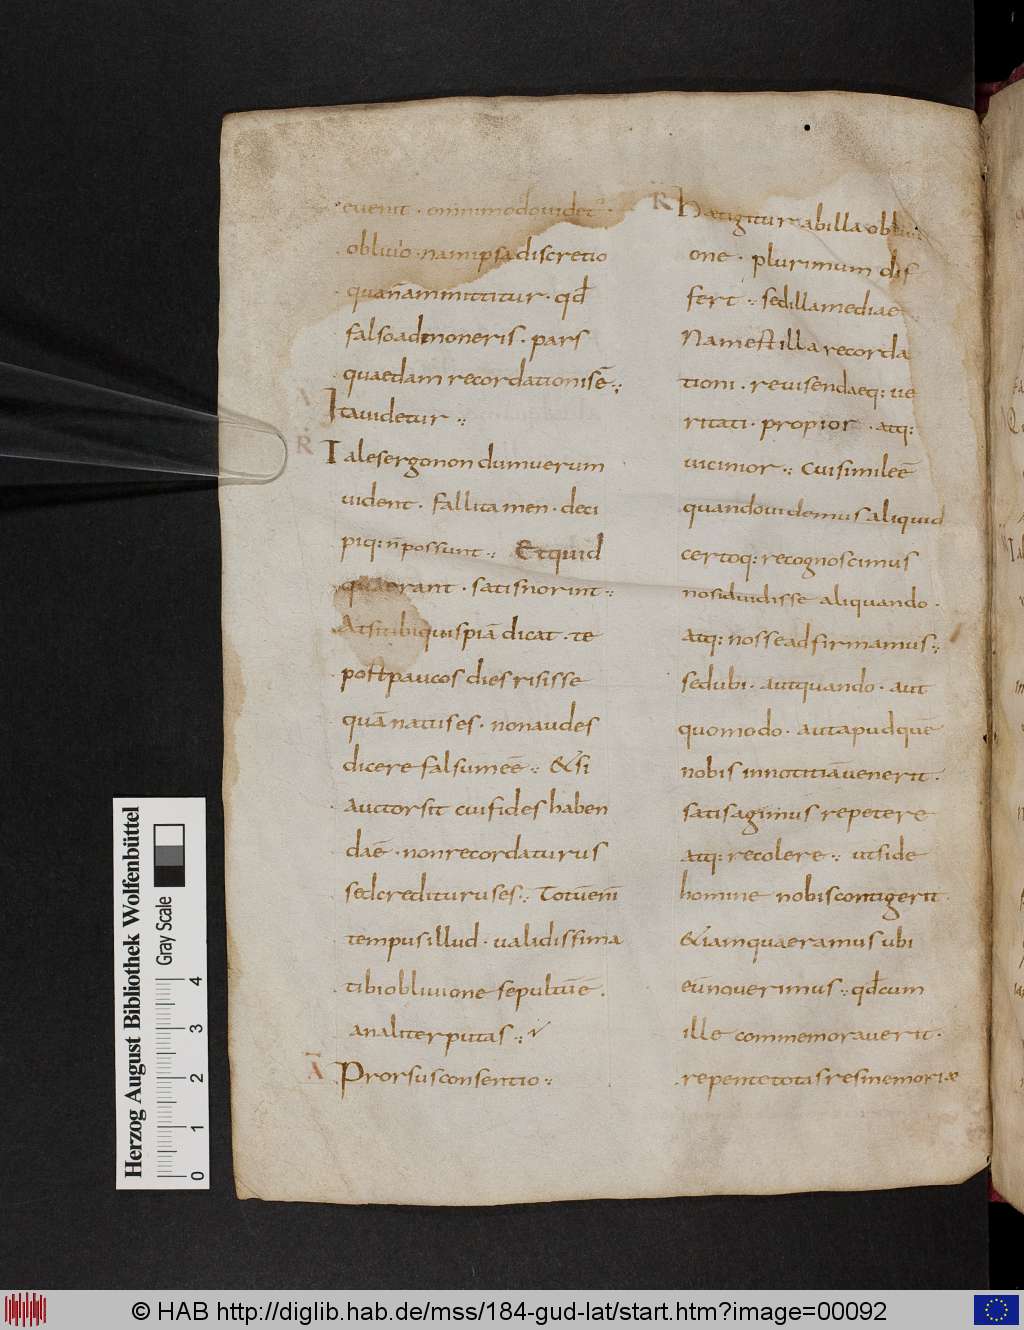 evenit · ommimodo videt᷑ ·
oblivio · nam ipsa discretio
quā n̄ ammittitur · qđ
falso admoneris · pars
quaedam recordationis ē ·:
A Ita videtur ·:
R Tales ergo non dum verum
vident · Falli tamen · deci
piq: n̄ possunt ·: Et quid
quaerant · satis norint ·:
At si ubi quispiā dicat · te
post paucos dies risisse
quā natus es · non audes
dicere falsum ēē ·: & si
auctor sit cui fides haben
da ē · non recordaturus
sed crediturus es ·: Totū eni̅
tempus illud · validissima
tibi oblivione sepultū ē ·
an aliter putas ·:
A Prorsus consentio ·:
R Haec igitur ab illa obli
one · plurimum dif
fert ·: sed illa media e
Nam est illa recorda
tioni · revisendaeq: ve
ritati · propior · atq:
vicinior ·: cui simile ē
quando videmus aliquid
certoq: recognoscimus
nos id vidisse aliquando ·
atq: nosse adfirmamus ·:
sed ubi · aut quando · aut
quomodo · aut apud quē
nobis in notitiā venerit ·
satis agimus repetere
atq: recolere ·: ut si de
homine nobis contigerit ·
& iam quaeramus ubi
eū noverimus ·: qđ cum
ille commemoraverit ·
repente tota res memoriæ
Herzog August Bibliothek Wolfenbüttel
Gray Scale
0 1 2 3 4
© HAB http://diglib.hab.de/mss/184-gud-lat/start.htm?image=00092